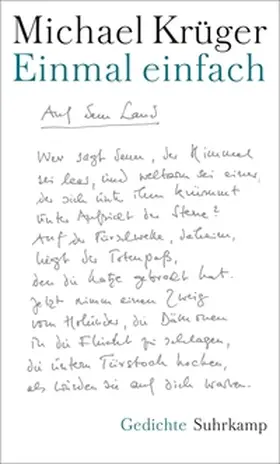 Michael Krüger
Einmal einfach
Auf dem Land
Wer sagt denn, der Himmel
sei leer, und weltarm sei einer,
der sich unter ihm krümmt
unter Aufsicht der Sterne?
Auf der Türschwelle, daheim,
liegt der Totenpaß,
den die Katze gebracht hat.
Jetzt nimm einen Zweig
vom Holunder, die Dämonen
in die Flucht zu schlagen,
die unterm Türstock hocken,
als würden sie auf dich warten.
Gedichte Suhrkamp